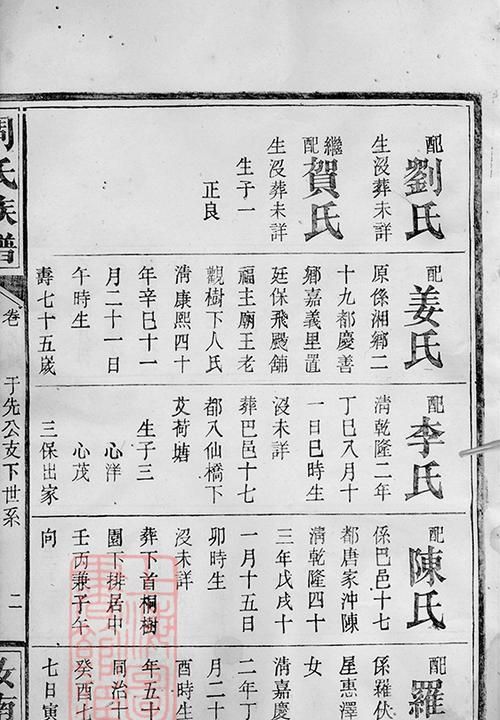 配
劉氏
生沒葬未詳
繼配
賀氏
生沒葬未詳
生子一
正良
配
姜氏
原係湘鄉二
十九都慶善
鄉嘉義里置
廷保飛颺舖
福主廟王老
觀樹下人氏
清康熙四十
年辛巳十一
月二十一日
午時生
壽七十五歲
配
李氏
清乾隆二年
丁巳八月十
一日巳時生
沒未詳
葬巴邑十七
都入仙橋下
艾荷塘
生子三
心洋
心茂
三保出家
配
陳氏
係巴邑十七
都唐家沖陳
清乾隆四十
三年戊戌十
一月十五日
卯時生
沒未詳
葬下首桐樹
園下排居中
壬丙兼子午
向
配
羅
係羅伏
星惠澤
女
清嘉慶
二年丁
月二十
酉時生
年五十
同治十
癸酉七
七日寅
周氏族譜
卷
于先公支下世系
二
汝南